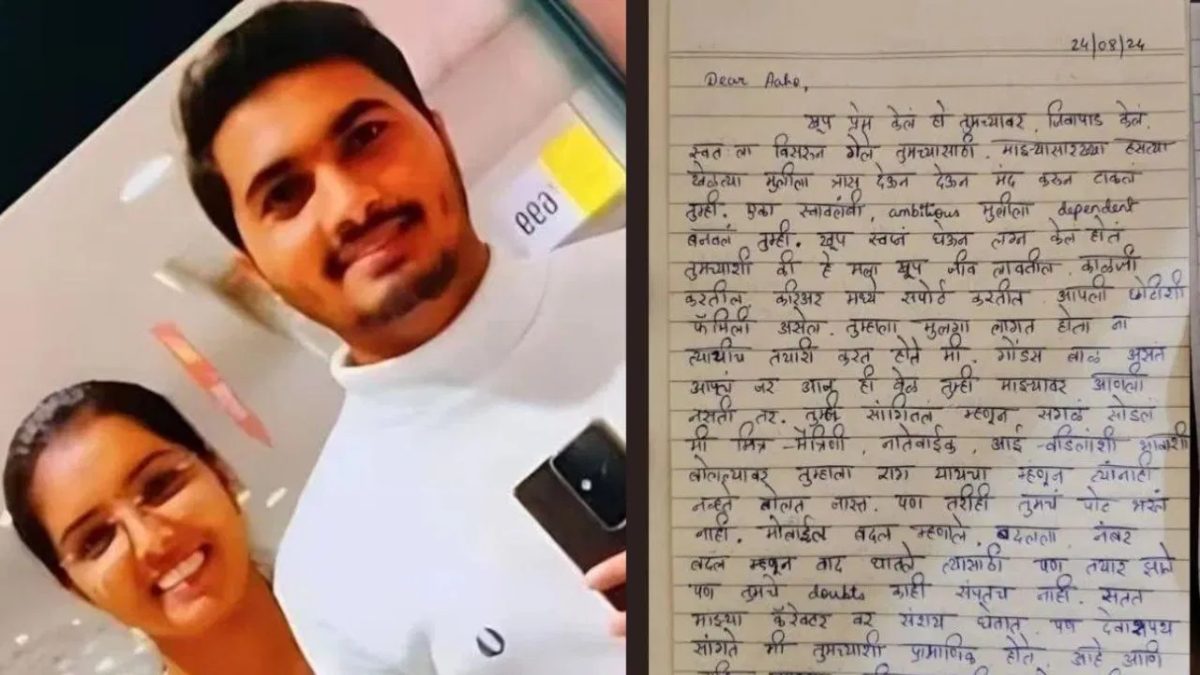 eea
24/08/24
Dear Aaho,
खूप प्रेम केलं हो तुमच्यावर, जिवापाड केलं.
स्वत ला विसरुन गेले तुमच्यासाठी. माझ्यासारख्या हसत्या
खेळत्या मुलीला त्रास देऊन देऊन मंद करुन टाकलं
तुम्ही. एका स्वावलंबी, ambitious मुलीला dependent
बनवलं तुम्ही. खूप स्वप्नं घेऊन लग्न केल होतं
तुमच्याशी की हे मला खूप जीव लावतील. काळजी
करतील, करिअर मध्ये सपोर्ट करतील. आपली छोटीशी
फॅमिली असेल. तुम्हाला मुलगा लागत होता ना
त्याचीच तयारी करत होते मी. गोंडस बाळ असतं
आपलं जर आज ही वेळ तुम्ही माझ्यावर आणली
नसती तर. तुम्ही सांगितलं म्हणून सगळं सोडलं
मी मित्र-मैत्रिणी, नातेवाईक, आई-वडिलांशी भावाशी
बोलल्यावर तुम्हाला राग यायचा म्हणून त्यांनाही
नव्हते बोलत जास्त. पण तरीही तुमचं पोट भरलं
नाही. मोबाईल बदल म्हणाले, बदलला नंबर
बदल म्हणून वाद घातले त्यासाठी पण तयार झाले
पण तुमचे doubts काही संपतच नाही. सतत
माझ्या कॅरेक्टर वर संशय घेतात. पण देवाशपथ
सांगते मी तुमच्याशी प्रामाणिक होते, आहे आणि